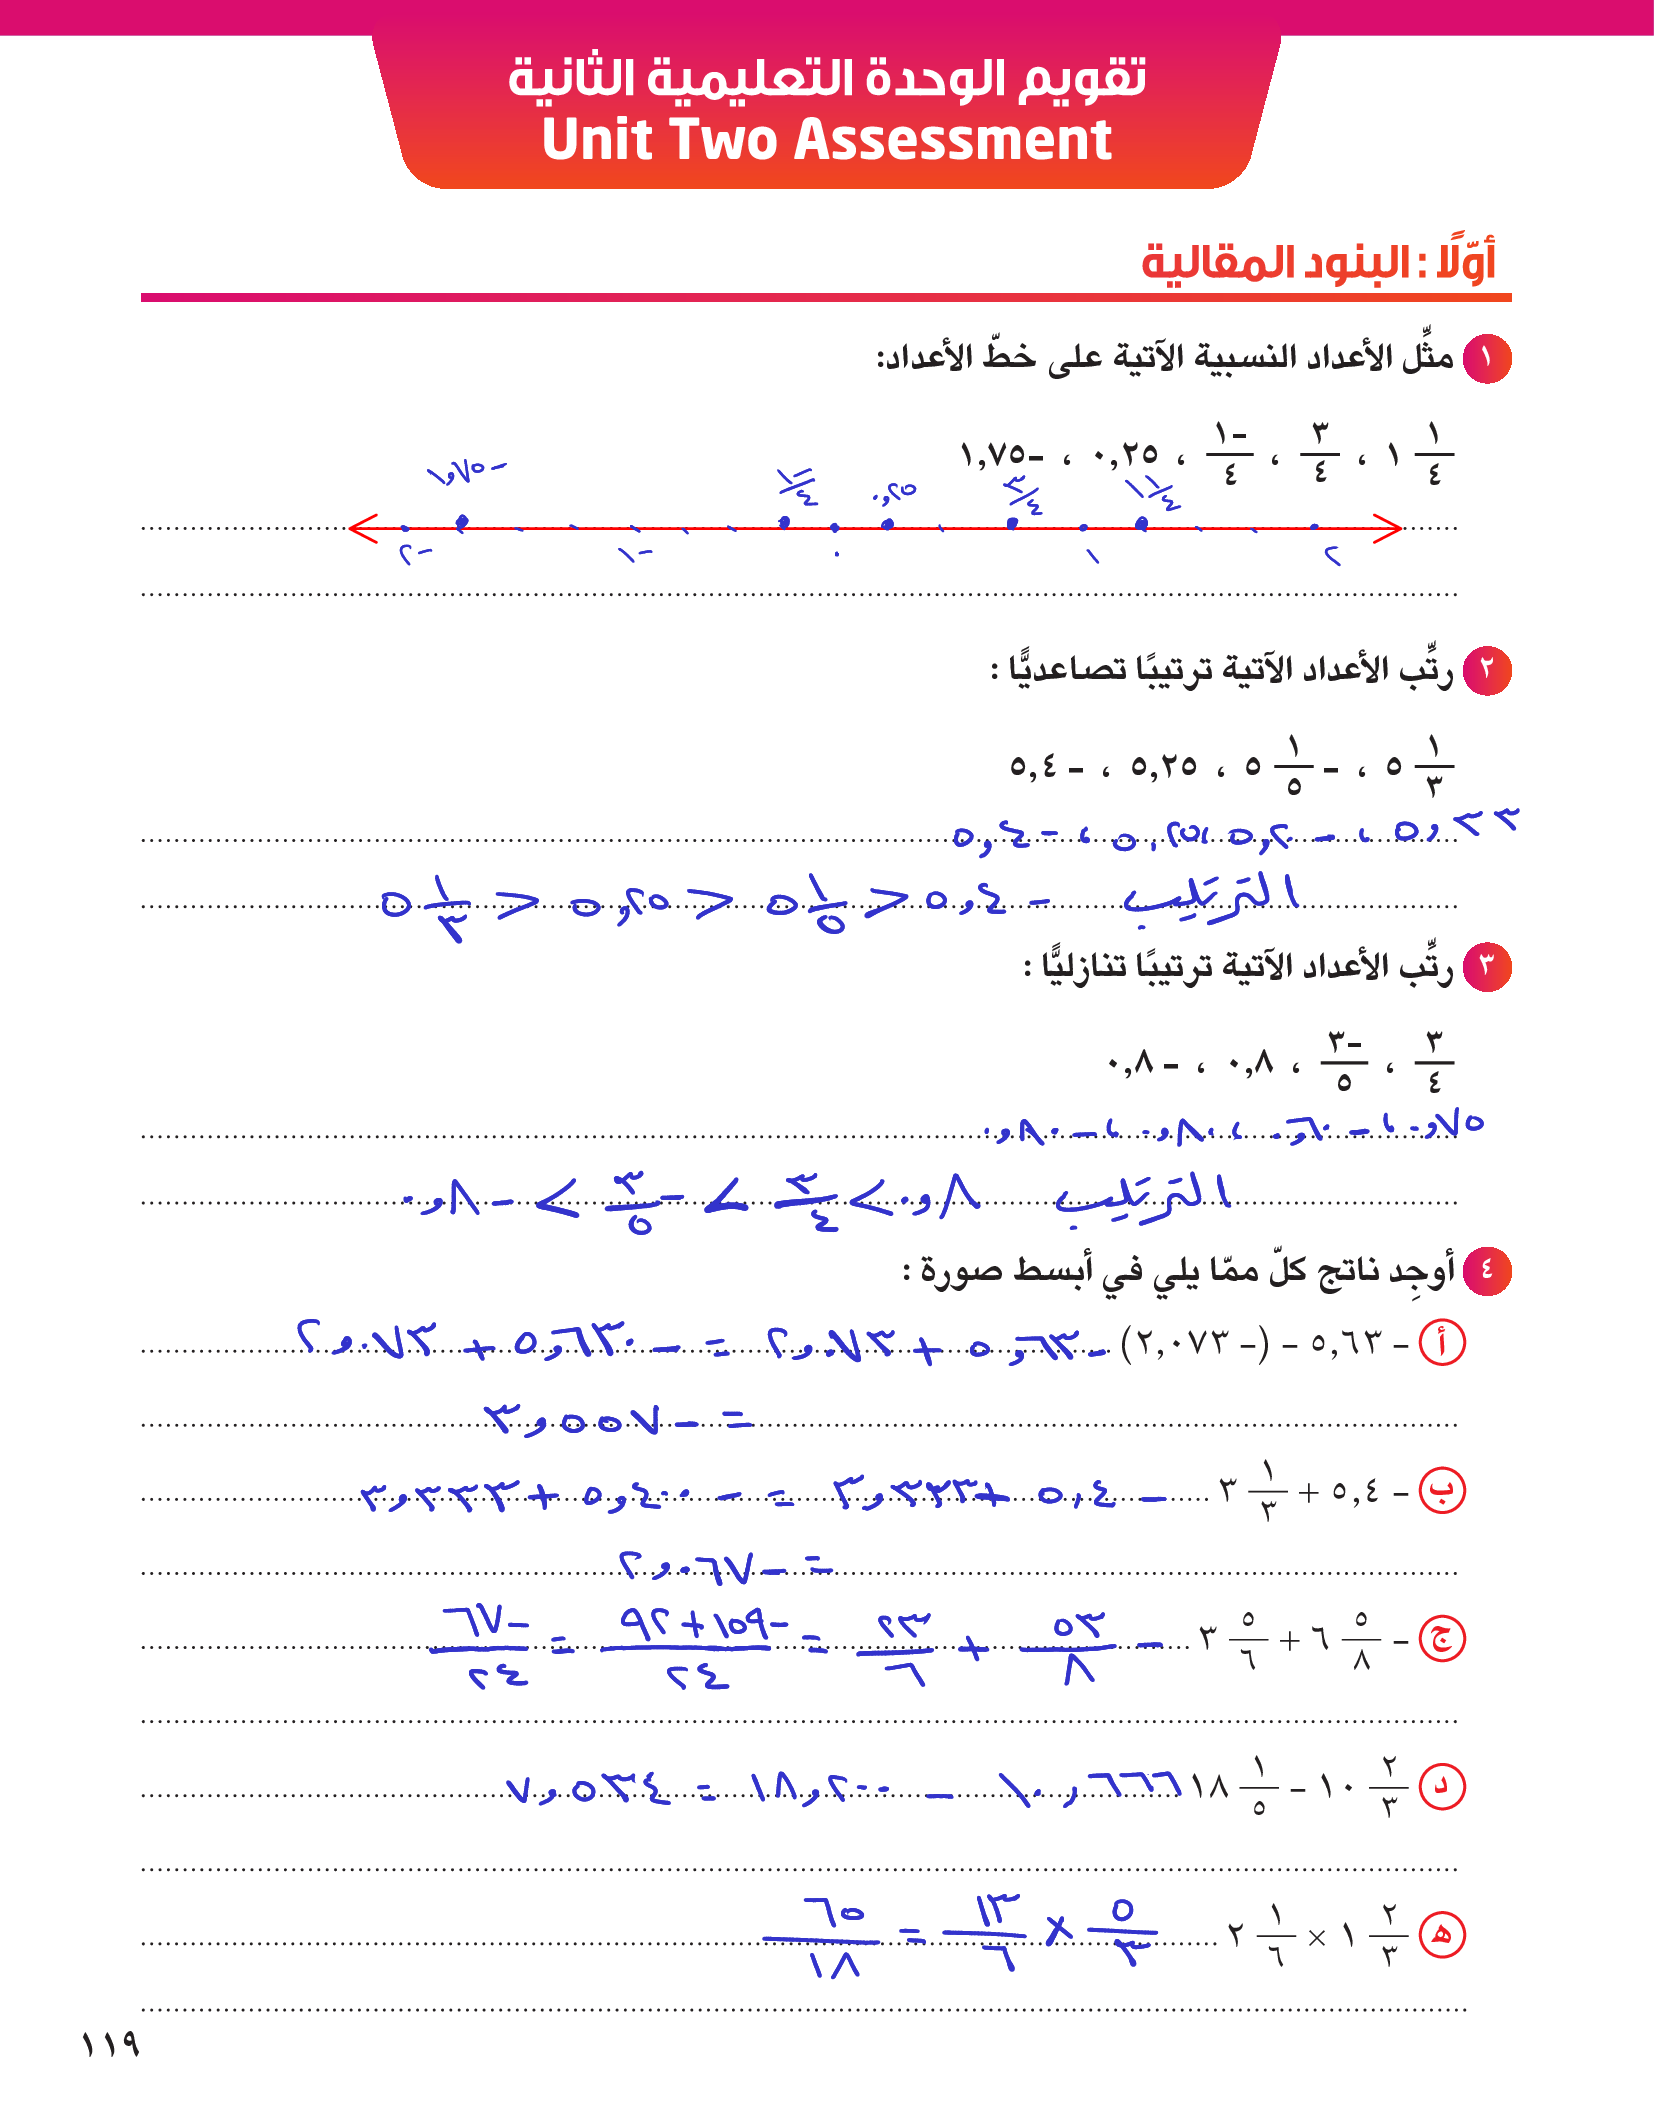 تقويم الوحدة التعليمية الثانية
Unit Two Assessment
أوّلًا : البنود المقالية
١ مثِّل الأعداد النسبية الآتية على خطّ الأعداد:
١ ١/٤ ، ٣/٤ ، -١/٤ ، ٠,٢٥ ، -١,٧٥
-١,٧٥ -١/٤ ٠,٢٥ ٣/٤ ١ ١/٤
-٢ -١ ٠ ١ ٢
٢ رتِّب الأعداد الآتية ترتيبًا تصاعديًّا :
٥ ١/٣ ، - ٥ ١/٥ ، ٥,٢٥ ، - ٥,٤
٥,٣٣ ، - ٥,٢٠ ، ٥,٢٥ ، - ٥,٤
الترتيب - ٥,٤ > ٥ ١/٥ > ٥,٢٥ > ٥ ١/٣
٣ رتِّب الأعداد الآتية ترتيبًا تنازليًّا :
٣/٤ ، -٣/٥ ، ٠,٨ ، - ٠,٨
٠,٧٥ ، - ٠,٦٠ ، ٠,٨٠ ، - ٠,٨٠
الترتيب ٠,٨ < ٣/٤ < - ٣/٥ < - ٠,٨
٤ أوجِد ناتج كلّ ممّا يلي في أبسط صورة :
أ - ٥,٦٣ - (- ٢,٠٧٣) - ٥,٦٣ + ٢,٠٧٣ = - ٥,٦٣٠ + ٢,٠٧٣
= - ٣,٥٥٧
ب - ٥,٤ + ٣ ١/٣ - ٥,٤ + ٣,٣٣٣ = - ٥,٤٠٠ + ٣,٣٣٣
= - ٢,٠٦٧
ج - ٦ ٥/٨ + ٣ ٥/٦ - ٥٣/٨ + ٢٣/٦ = -١٥٩ + ٩٢/٢٤ = -٦٧/٢٤
د ١٠ ٢/٣ - ١٨ ١/٥ ١٠,٦٦٦ - ١٨,٢٠٠ = ٧,٥٣٤
ه ١ ٢/٣ × ٢ ١/٦ ٥/٣ × ١٣/٦ = ٦٥/١٨
١١٩